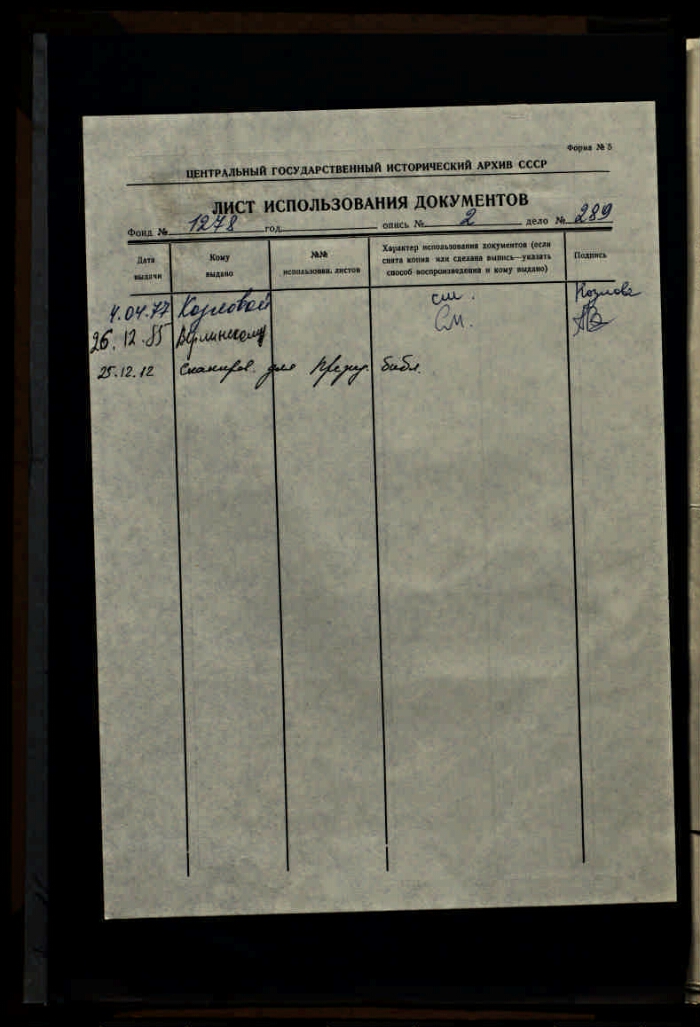 Форма № 5
ЦЕНТРАЛЬНЫЙ ГОСУДАРСТВЕННЫЙ ИСТОРИЧЕСКИЙ АРХИВ СССР
ЛИСТ ИСПОЛЬЗОВАНИЯ ДОКУМЕНТОВ
Фонд № 1278 год опись № 2 дело № 289
Дата выдачи
Кому выдано
№№ использован. листов
Характер использования документов (если снята копия или сделана выпись—указать способ воспроизведения и кому выдано)
Подпись
4.04.77 Козловой см. Козлова
26.12.85 См.
25.12.12 Сканиров. для През. библ.